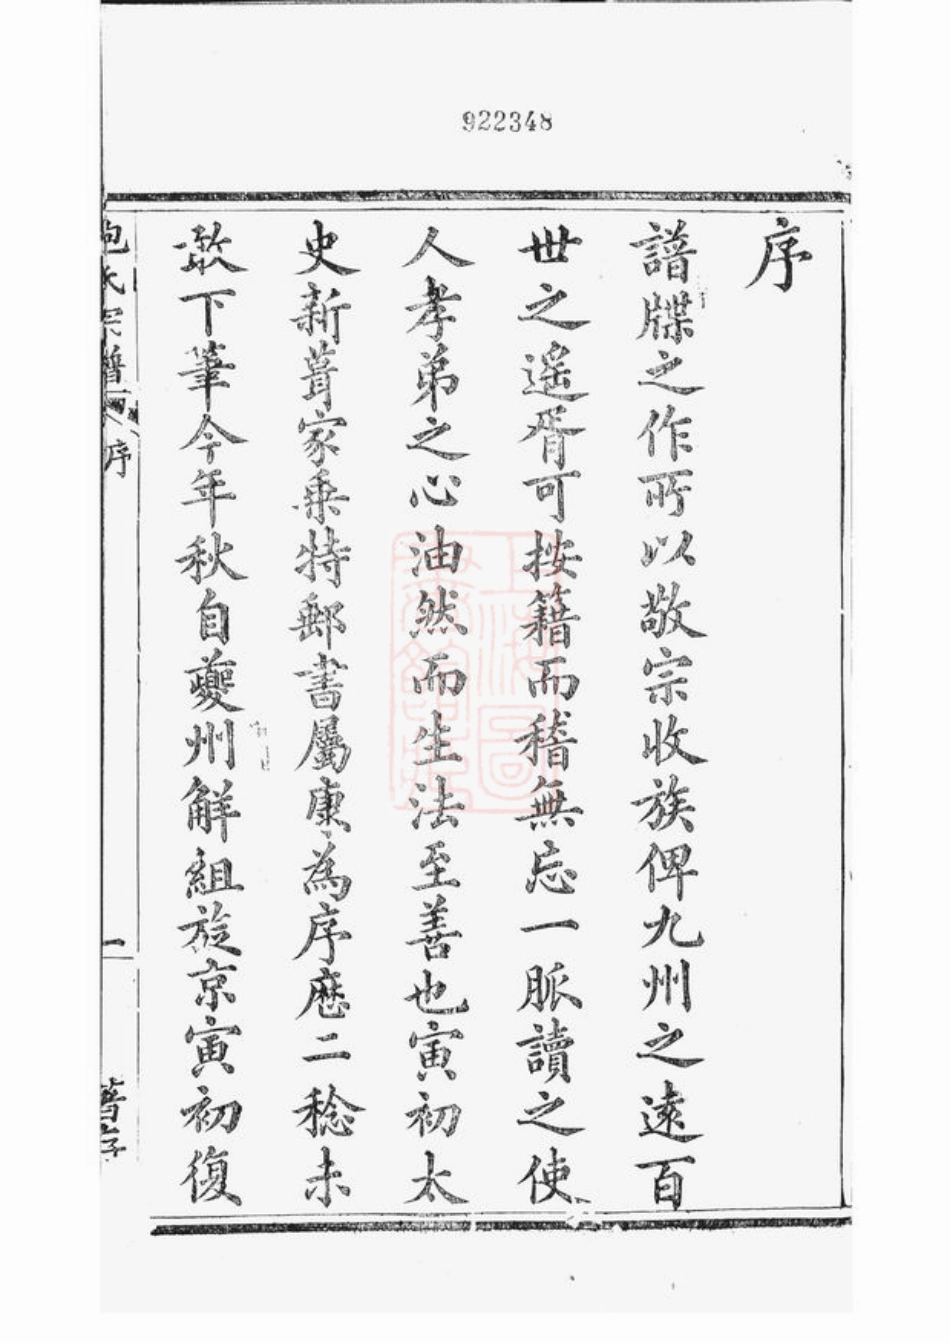 922348
序
譜牒之作所以敬宗收族俾九州之遠百
世之遥胥可按籍而稽無忘一脈讀之使
人孝弟之心油然而生法至善也寅初太
史新葺家乗特郵書屬康為序歷二稔未
敢下筆今年秋自夔州解組旋京寅初復
包氏宗譜 序
一
上海圖
書館藏